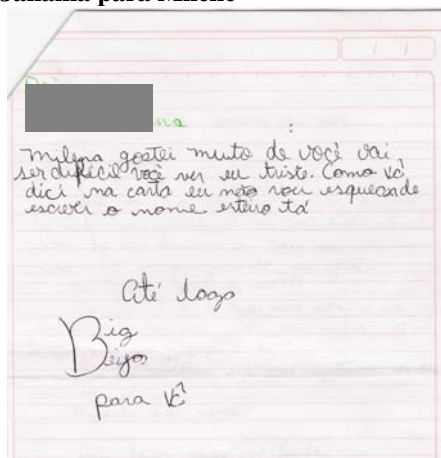 para Milene
milena gostei muito de você vai
ser dificil você ver eu triste. Como vcê
dici na carta eu não vou esquecende
escever o nome enteiro tá
Até logo
Big
Beijos
para vcê